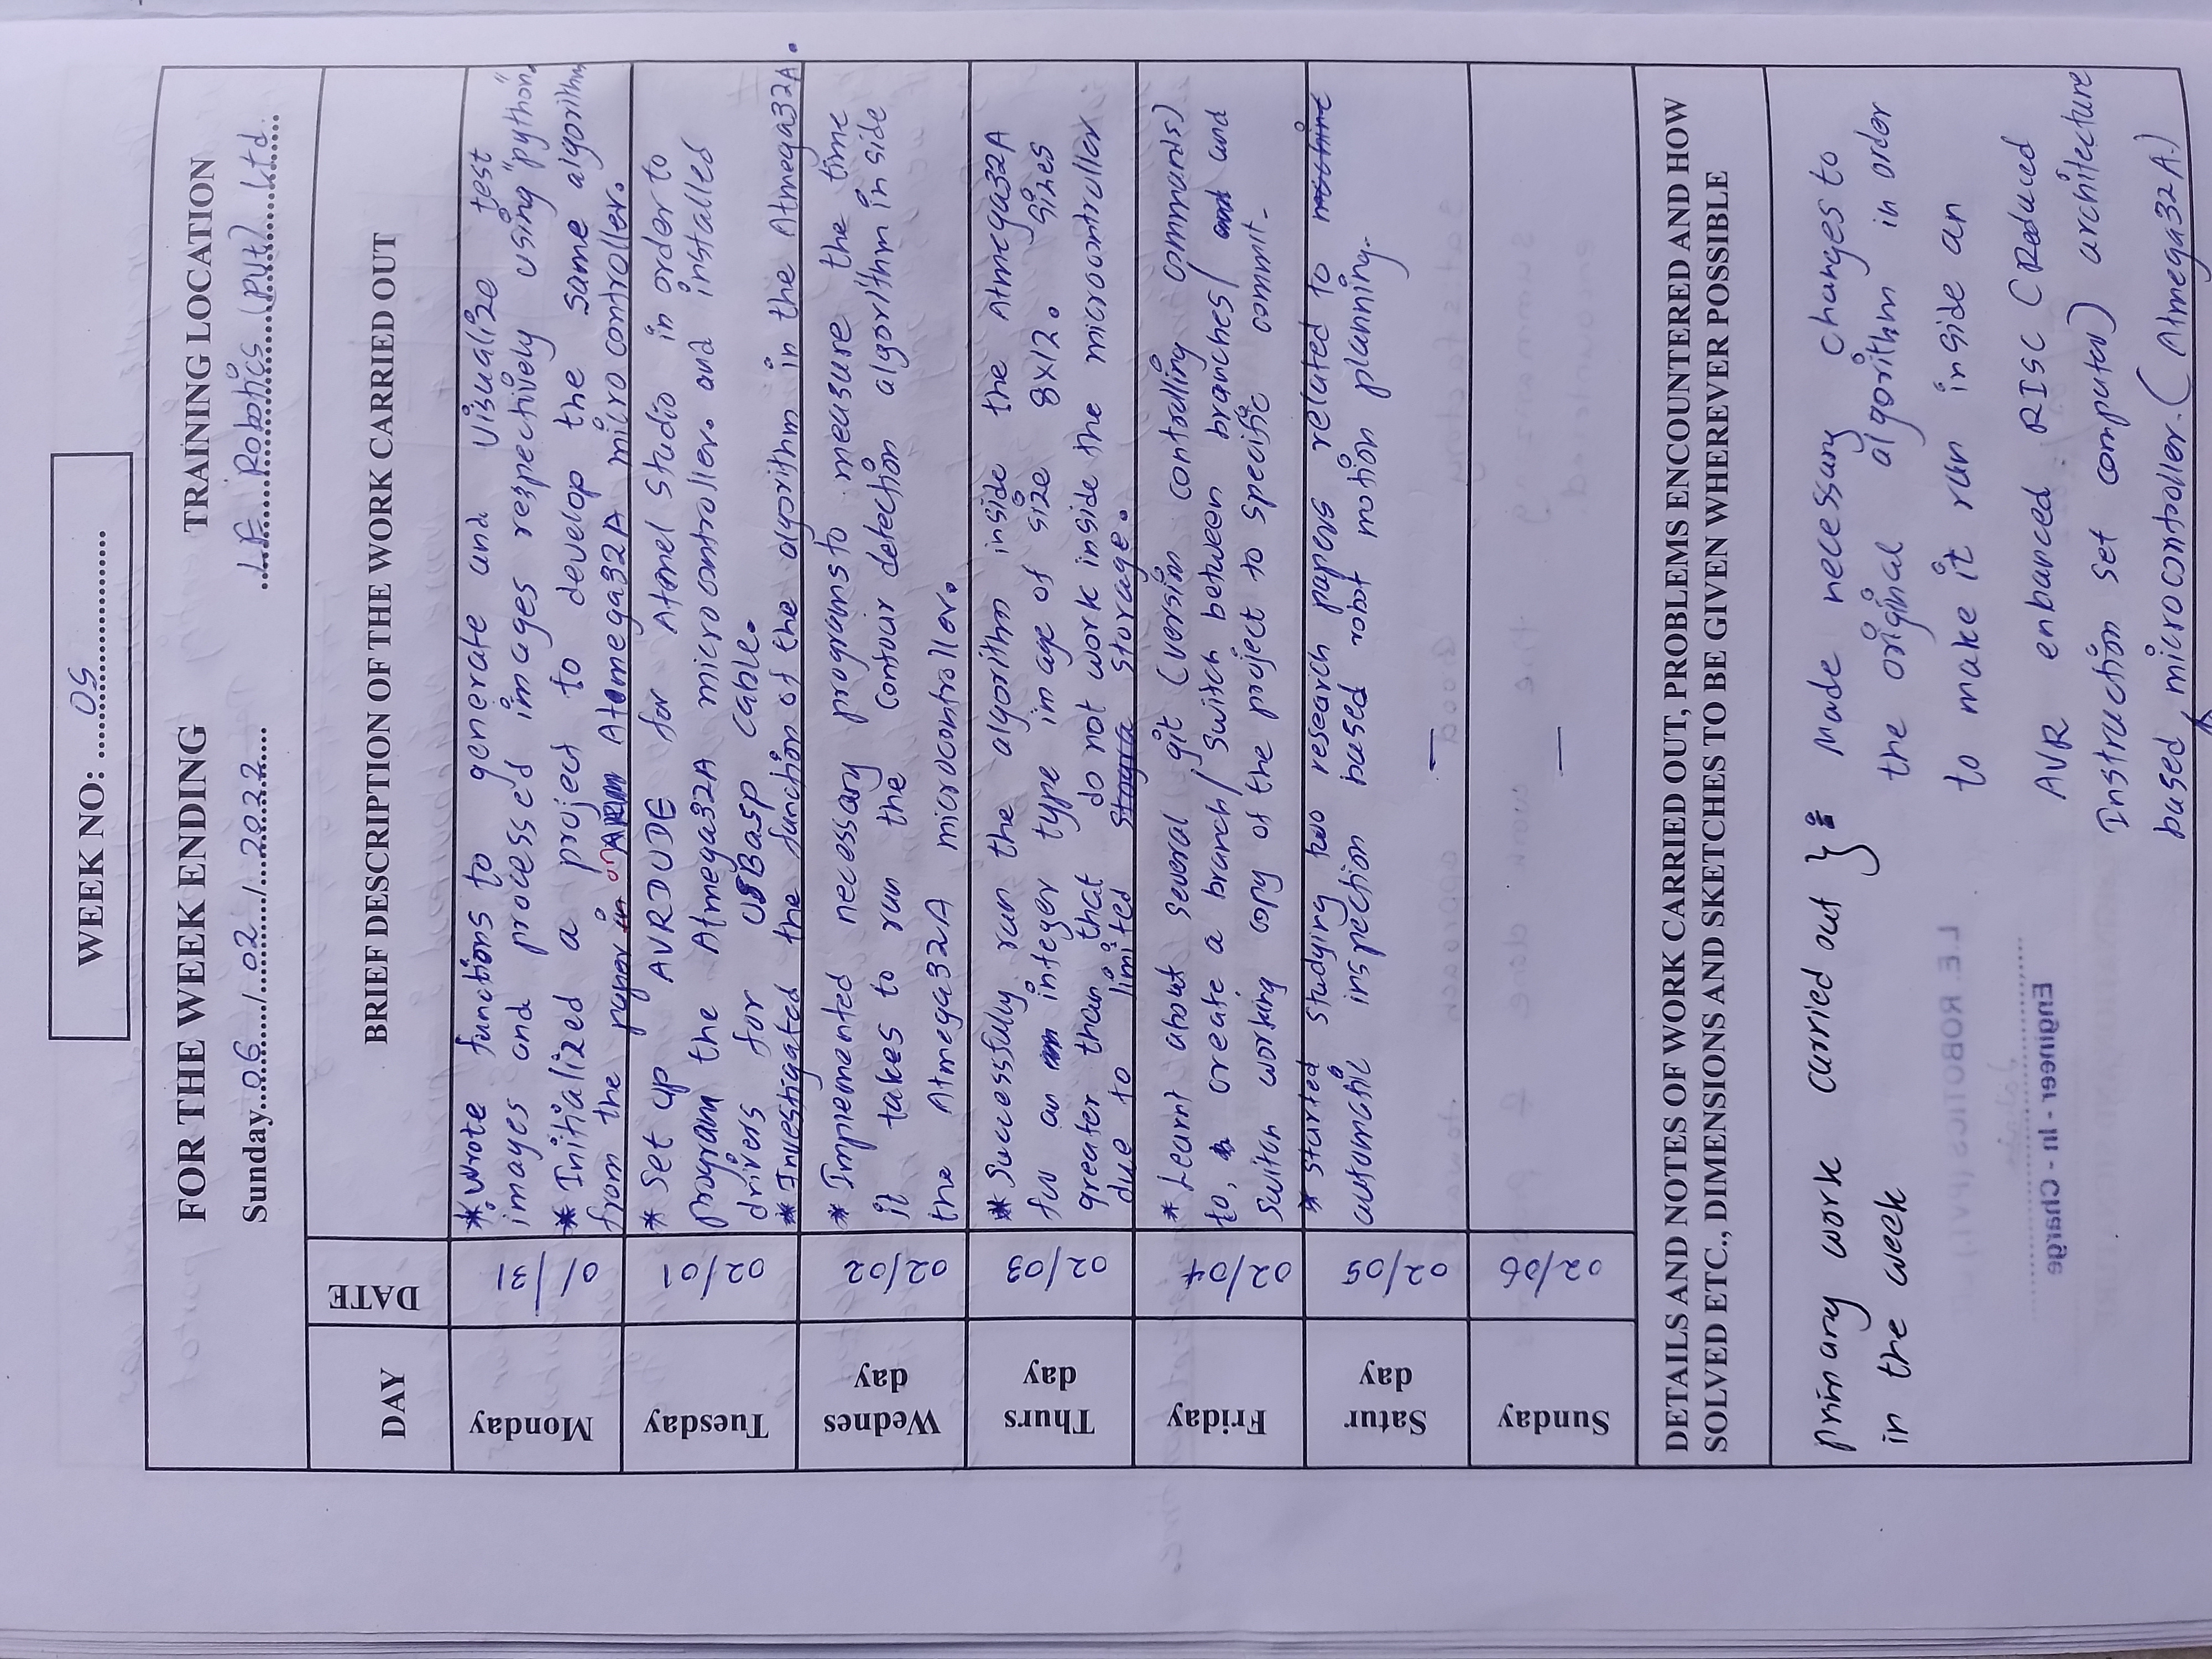 WEEK NO: 05
FOR THE WEEK ENDING TRAINING LOCATION
Sunday 06 / 02 / 2022 LE Robotics (Pvt) Ltd.
DAY DATE BRIEF DESCRIPTION OF THE WORK CARRIED OUT
Monday 01/31
* Wrote functions to generate and visualize test
images and processed images respectively using "python".
* Initialized a project to develop the same algorithm
from the paper in on Atmega32A micro controller.
Tuesday 02/01
* Set up AVRDUDE for Atmel Studio in order to
program the Atmega32A microcontroller. and installed
drivers for USBasp cable.
* Investigated the function of the algorithm in the Atmega32A.
Wednes day 02/02
* Implemented necessary programs to measure the time
it takes to run the contour detection algorithm inside
the Atmega32A microcontroller.
Thurs day 02/03
* Successfully run the algorithm inside the Atmega32A
for an integer type image of size 8x12. Sizes
greater than that do not work inside the microcontroller
due to limited Stogra storage.
Friday 02/04
* Learnt about several git (version controlling commands)
to, create a branch/ switch between branches/ and and
switch working copy of the project to specific commit.
Satur day 02/05
* Started studying two research papers related to machine
automatic inspection based robot motion planning.
—
Sunday 02/06
—
DETAILS AND NOTES OF WORK CARRIED OUT, PROBLEMS ENCOUNTERED AND HOW
SOLVED ETC., DIMENSIONS AND SKETCHES TO BE GIVEN WHEREVER POSSIBLE
Primary work carried out } : Made necessary changes to
in the week the original algorithm in order
to make it run inside an
AVR enhanced RISC (Reduced
Instruction Set computer) architecture
based microcontroller. (Atmega32A.)
L.E. ROBOTICS (PVT.)
Engineer - In - Charge